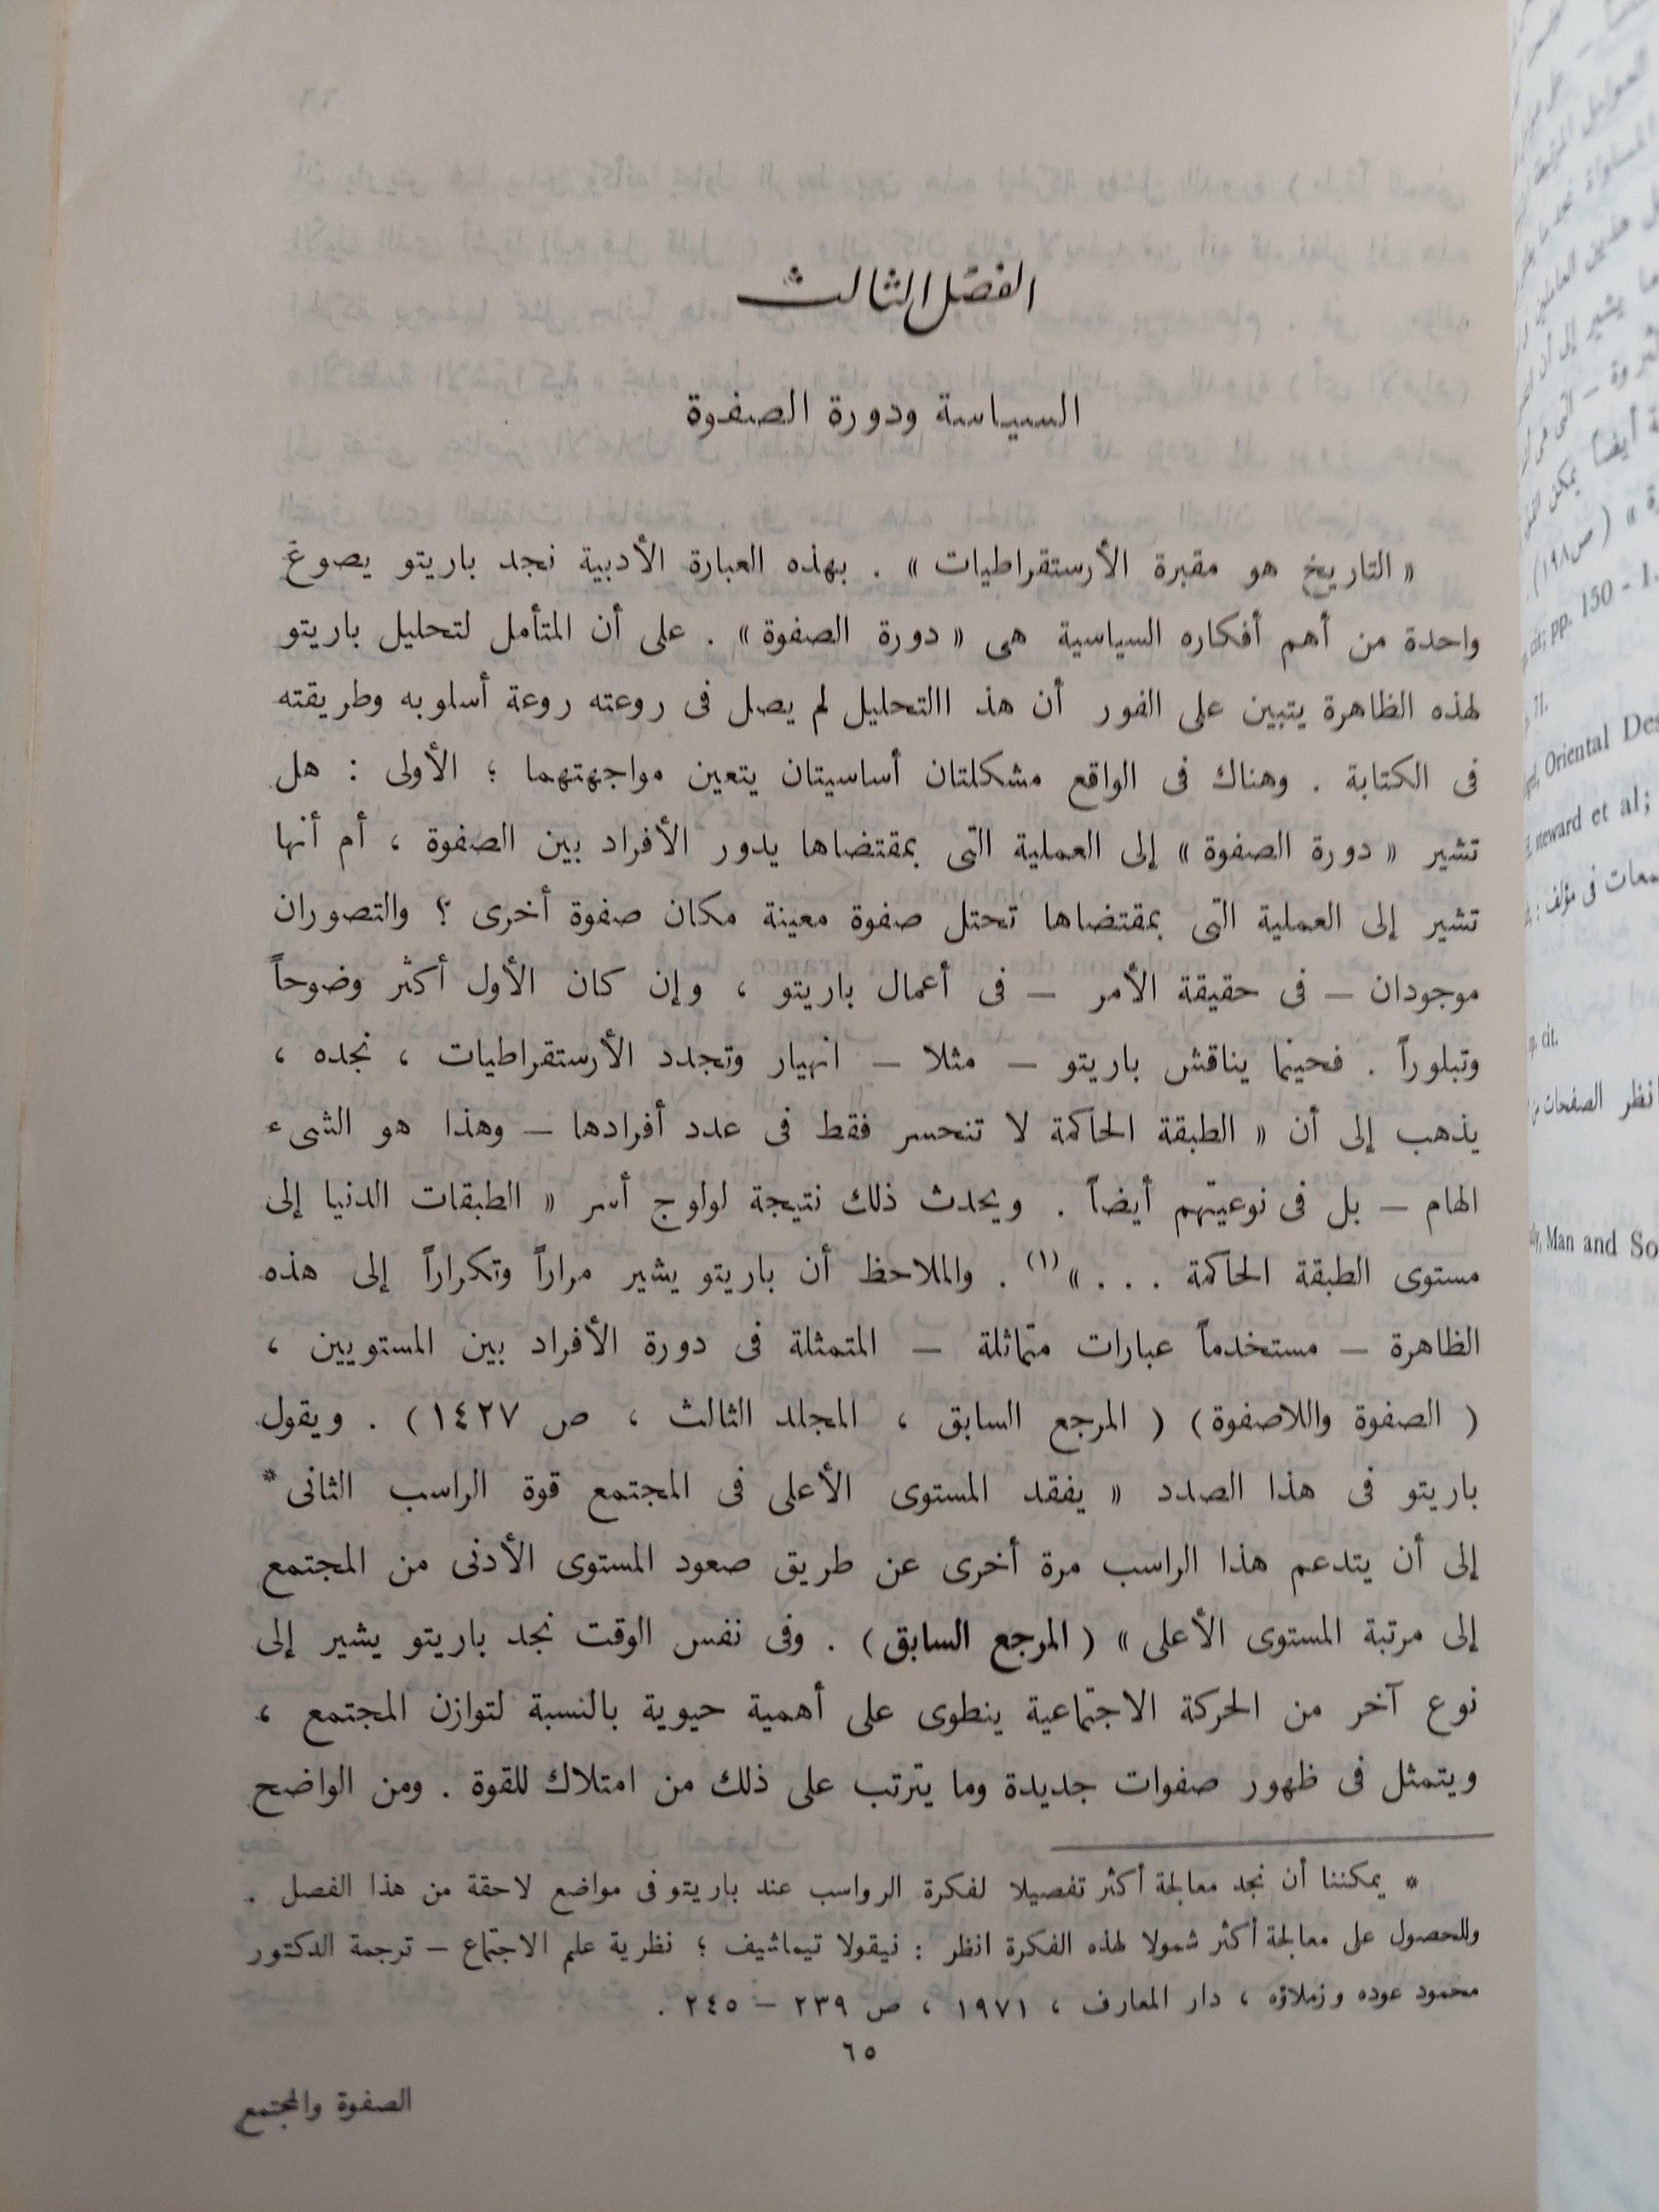 الفصل الثالث
السياسة ودورة الصفوة
« التاريخ هو مقبرة الأرستقراطيات » . بهذه العبارة الأدبية نجد باريتو يصوغ
واحدة من أهم أفكاره السياسية هى « دورة الصفوة » . على أن المتأمل لتحليل باريتو
لهذه الظاهرة يتبين على الفور أن هذ االتحليل لم يصل فى روعته روعة أسلوبه وطريقته
فى الكتابة . وهناك فى الواقع مشكلتان أساسيتان يتعين مواجهتهما ؛ الأولى : هل
تشير « دورة الصفوة » إلى العملية التى بمقتضاها يدور الأفراد بين الصفوة ، أم أنها
تشير إلى العملية التى بمقتضاها تحتل صفوة معينة مكان صفوة أخرى ؟ والتصوران
موجودان – فى حقيقة الأمر – فى أعمال باريتو ، وإن كان الأول أكثر وضوحاً
وتبلوراً . فحينما يناقش باريتو – مثلا – انهيار وتجدد الأرستقراطيات ، نجده ،
يذهب إلى أن « الطبقة الحاكمة لا تنحسر فقط فى عدد أفرادها – وهذا هو الشىء
الهام – بل فى نوعيتهم أيضاً . ويحدث ذلك نتيجة لولوج أسر « الطبقات الدنيا إلى
مستوى الطبقة الحاكمة . . . » (١) . والملاحظ أن باريتو يشير مراراً وتكراراً إلى هذه
الظاهرة – مستخدماً عبارات متماثلة – المتمثلة فى دورة الأفراد بين المستويين ،
( الصفوة واللاصفوة ) ( المرجع السابق ، المجلد الثالث ، ص ١٤٢٧ ) . ويقول
باريتو فى هذا الصدد « يفقد المستوى الأعلى فى المجتمع قوة الراسب الثانى *
إلى أن يتدعم هذا الراسب مرة أخرى عن طريق صعود المستوى الأدنى من المجتمع
إلى مرتبة المستوى الأعلى » ( المرجع السابق ) . وفى نفس الوقت نجد باريتو يشير إلى
نوع آخر من الحركة الاجتماعية ينطوى على أهمية حيوية بالنسبة لتوازن المجتمع ،
ويتمثل فى ظهور صفوات جديدة وما يترتب على ذلك من امتلاك للقوة . ومن الواضح
* يمكننا أن نجد معالجة أكثر تفصيلا لفكرة الرواسب عند باريتو فى مواضع لاحقة من هذا الفصل .
وللحصول على معالجة أكثر شمولا لهذه الفكرة انظر : نيقولا تيماشيف ؛ نظرية علم الاجتماع – ترجمة الدكتور
محمود عوده وزملاؤه ، دار المعارف ، ١٩٧١ ، ص ٢٣٩ – ٢٤٥ .
٦٥
الصفوة والمجتمع
pp. 150 - 1
Oriental Des
steward et al;
op. cit.
انظر الصفحات من
Man and So